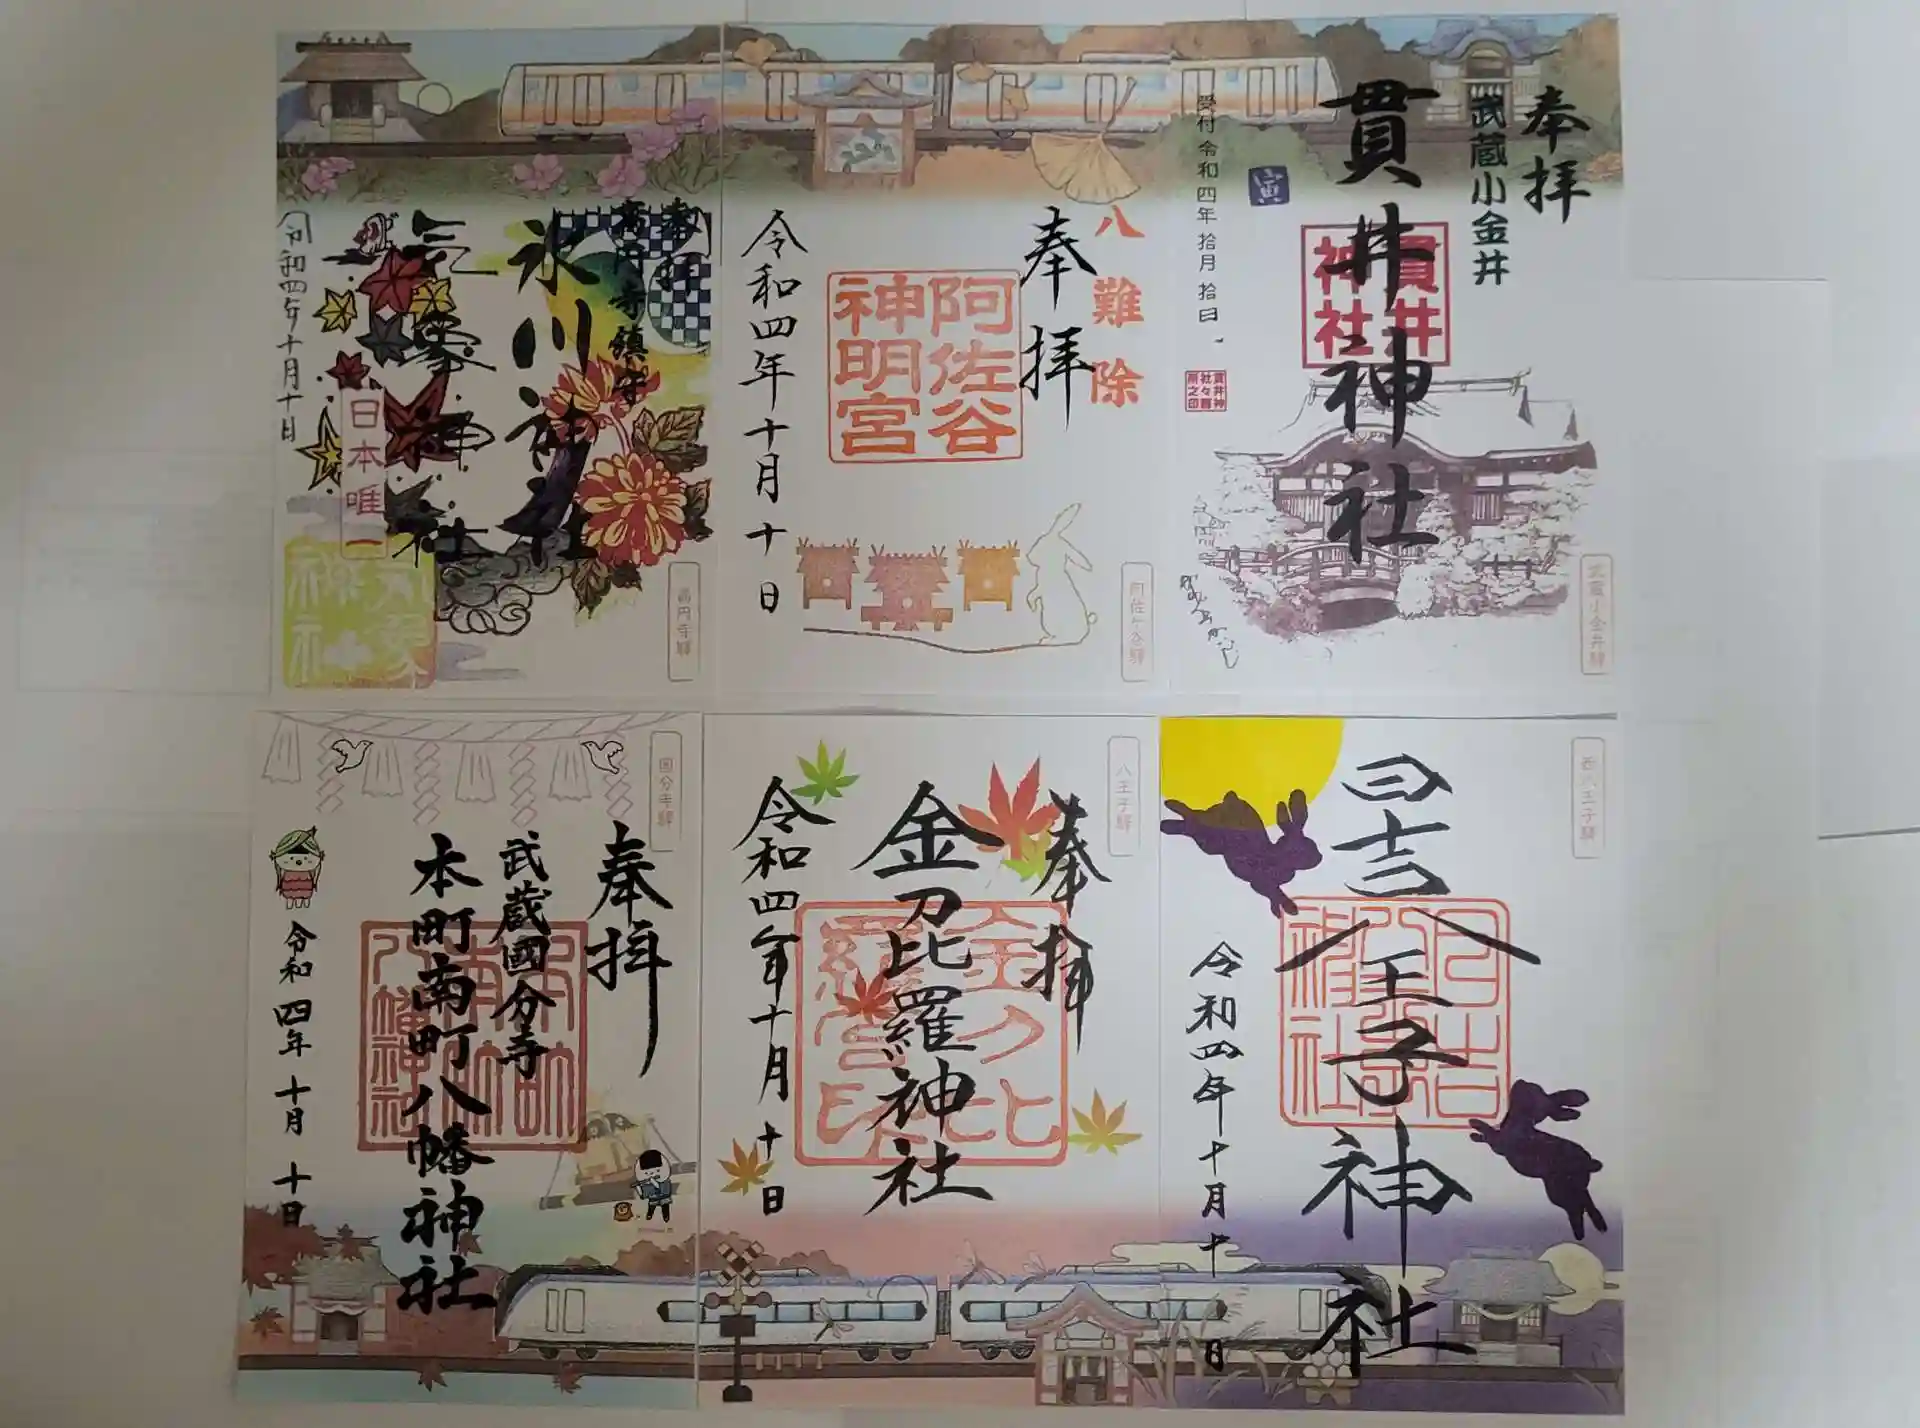 奉拝
高円寺鎮守
氷川神社
気象神社
日本唯一
令和四年十月十日
高円寺驛
八難除
奉拝
阿佐谷神明宮
令和四年十月十日
阿佐ケ谷驛
奉拝
武蔵小金井
貫井神社
貫井神社
寅
受付 令和四年 拾月 拾日
武蔵小金井驛
国分寺驛
奉拝
武蔵國分寺
本町南町八幡神社
令和四年 十月 十日
八王子驛
奉拝
金刀比羅神社
令和四年十月十日
西八王子驛
日吉八王子神社
令和四年十月十日